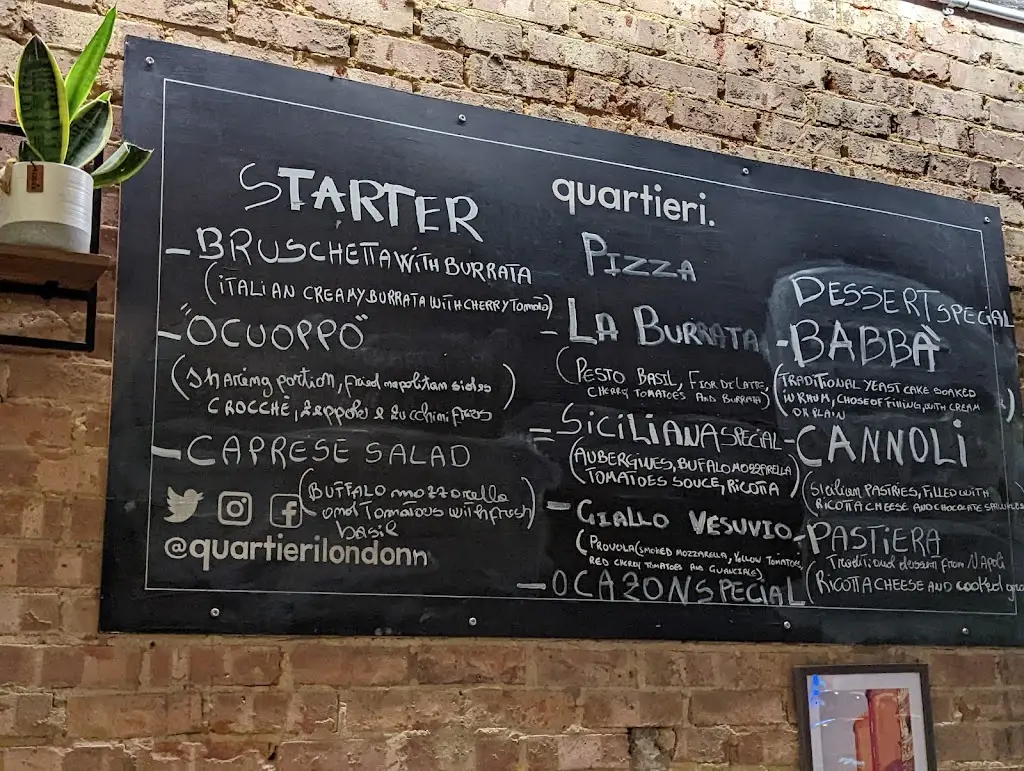 STARTER
- BRUSCHETTA WITH BURRATA
(ITALIAN CREAMY BURRATA WITH CHERRY TOMATO)
- "OCUOPPO"
(Sharing portion, fried napolitan sides
CROCCHÈ, zeppole e zucchini fries)
- CAPRESE SALAD
(BUFFALO mozzarella
and Tomatous with fresh
basil)
@quartierilondonn
quartieri.
PIZZA
- LA BURRATA
(PESTO BASIL, FIOR DI LATTE,
CHERRY TOMATOES AND BURRATA)
= SICILIANA SPECIAL
(AUBERGINES, BUFALO MOZZARELLA
TOMATOES SOUCE, RICOTTA)
- GIALLO VESUVIO
(PROVOLA (SMOKED MOZZARELLA, YELLOW TOMATOES,
RED CHERRY TOMATOES AND GUANCIALE)
- OCAZONSPECIAL
DESSERT SPECIAL
- BABBÀ
(TRADITIONAL YEAST CAKE SOAKED
IN RHUM, CHOSE OF FILLING, WITH CREAM
OR PLAIN)
- CANNOLI
(Sicilian PASTRIES, FILLED WITH
RICOTTA CHEESE AND CHOCOLATE
- PASTIERA
Traditional dessert from Napoli
(RICOTTA CHEESE AND cooked